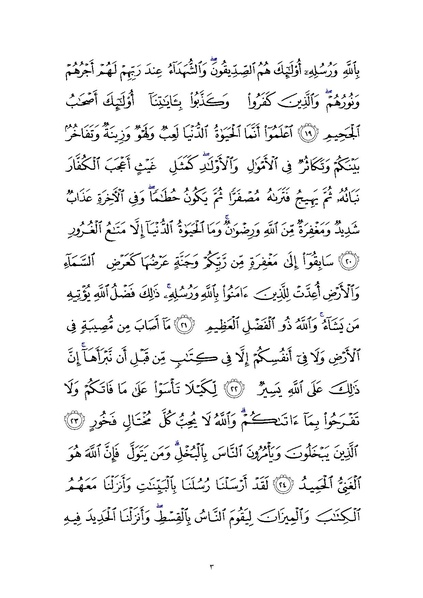 بِٱللَّهِ وَرُسُلِهِۦٓ أُو۟لَـٰٓئِكَ هُمُ ٱلصِّدِّيقُونَ ۖ وَٱلشُّهَدَآءُ عِندَ رَبِّهِمْ لَهُمْ أَجْرُهُمْ
وَنُورُهُمْ ۖ وَٱلَّذِينَ كَفَرُوا۟ وَكَذَّبُوا۟ بِـَٔايَـٰتِنَآ أُو۟لَـٰٓئِكَ أَصْحَـٰبُ
ٱلْجَحِيمِ ﴿١٩﴾ ٱعْلَمُوٓا۟ أَنَّمَا ٱلْحَيَوٰةُ ٱلدُّنْيَا لَعِبٌ وَلَهْوٌ وَزِينَةٌ وَتَفَاخُرٌۢ
بَيْنَكُمْ وَتَكَاثُرٌ فِى ٱلْأَمْوَٰلِ وَٱلْأَوْلَـٰدِ ۖ كَمَثَلِ غَيْثٍ أَعْجَبَ ٱلْكُفَّارَ
نَبَاتُهُۥ ثُمَّ يَهِيجُ فَتَرَىٰهُ مُصْفَرًّا ثُمَّ يَكُونُ حُطَـٰمًا ۖ وَفِى ٱلْـَٔاخِرَةِ عَذَابٌ
شَدِيدٌ وَمَغْفِرَةٌ مِّنَ ٱللَّهِ وَرِضْوَٰنٌ ۚ وَمَا ٱلْحَيَوٰةُ ٱلدُّنْيَآ إِلَّا مَتَـٰعُ ٱلْغُرُورِ
﴿٢٠﴾ سَابِقُوٓا۟ إِلَىٰ مَغْفِرَةٍ مِّن رَّبِّكُمْ وَجَنَّةٍ عَرْضُهَا كَعَرْضِ ٱلسَّمَآءِ
وَٱلْأَرْضِ أُعِدَّتْ لِلَّذِينَ ءَامَنُوا۟ بِٱللَّهِ وَرُسُلِهِۦ ۚ ذَٰلِكَ فَضْلُ ٱللَّهِ يُؤْتِيهِ
مَن يَشَآءُ ۚ وَٱللَّهُ ذُو ٱلْفَضْلِ ٱلْعَظِيمِ ﴿٢١﴾ مَآ أَصَابَ مِن مُّصِيبَةٍ فِى
ٱلْأَرْضِ وَلَا فِىٓ أَنفُسِكُمْ إِلَّا فِى كِتَـٰبٍ مِّن قَبْلِ أَن نَّبْرَأَهَآ ۚ إِنَّ
ذَٰلِكَ عَلَى ٱللَّهِ يَسِيرٌ ﴿٢٢﴾ لِّكَيْلَا تَأْسَوْا۟ عَلَىٰ مَا فَاتَكُمْ وَلَا
تَفْرَحُوا۟ بِمَآ ءَاتَىٰكُمْ ۗ وَٱللَّهُ لَا يُحِبُّ كُلَّ مُخْتَالٍ فَخُورٍ ﴿٢٣﴾
ٱلَّذِينَ يَبْخَلُونَ وَيَأْمُرُونَ ٱلنَّاسَ بِٱلْبُخْلِ ۗ وَمَن يَتَوَلَّ فَإِنَّ ٱللَّهَ هُوَ
ٱلْغَنِىُّ ٱلْحَمِيدُ ﴿٢٤﴾ لَقَدْ أَرْسَلْنَا رُسُلَنَا بِٱلْبَيِّنَـٰتِ وَأَنزَلْنَا مَعَهُمُ
ٱلْكِتَـٰبَ وَٱلْمِيزَانَ لِيَقُومَ ٱلنَّاسُ بِٱلْقِسْطِ ۖ وَأَنزَلْنَا ٱلْحَدِيدَ فِيهِ
٣